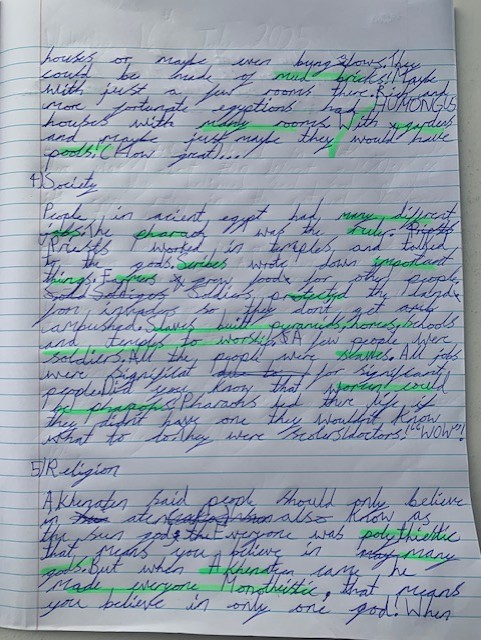 houses or maybe even bungalows. They
could be made of mud bricks! Maybe
with just a few rooms there. Rich and
more fortunate egyptions had HUMONGUS
houses with many rooms. With gardens
and maybe just maybe they would have
pools. (How great)...
4) Society
People in acient egypt had many different
jobs. The pharaoh was the ruler.
Priests worked in temples and talked
to the gods. Scribes wrote down important
things. Farmers grow food for other people.
Soldiers protected the land
from invadors so they dont get any
ambushed. Slaves built pyramids, homes, schools
and temples to worship. A few people were
soldiers. All the peopl were slaves. All jobs
were significat for significant
people. Did you know that women could
be pharaohs! Pharaohs had there life if
they didn't have one they wouldn't know
what to do. They were doctors! "WOW"!
5) Religion
Akhenaten said peopl should only believe
in aten also know as
the sun god. Everyone was polythiestic
that means you believe in many
gods. But when Akhenaten came he
made everyone Monothiestic, that means
you believe in only one god! When